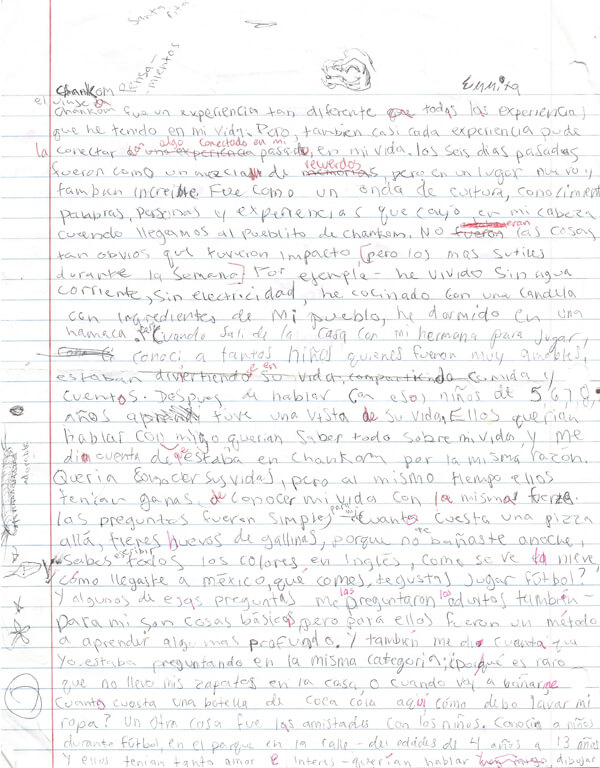 Santa Rita
Pensamientos
Chankom
Emmita
el viaje a
Chankom fue un experiencia tan diferente que todas las experiencias
que he tenido en mi vida. Pero, tambien casi cada experiencia pude
conectar a algo conectado en mi
la una experiencia pasado, en mi vida. los seis dias pasados
fueron como un mezcla de memorias, recuerdos pero en un lugar nuevo y
tambien increible. Fue como un onda de cultura, conocimiento
palabras, personas y experiencias que cayó en mi cabeza
cuando llegamos al pueblito de Chankom. No fueron eran las cosas
tan obvios que tuvieron impacto, [pero los mas sutiles
durante la semana] Por ejemplo - he vivido sin agua
corriente, sin electricidad, he cocinado con una candela
con ingredientes de mi pueblo, he dormido en una
hamaca. Cuando sali de la casa con mi hermana para jugar,
conocí a tantos niños quienes fueron muy amables,
estaban divirtiendose en su vida, compartiendo comida y
cuentos. Despues de hablar con esos niños de 5 6 7 8
años aprendí tuve una vista de su vida. Ellos querian
hablar conmigo querian saber todo sobre mi vida, y me
dio cuenta de que estaba en Chankom por la misma razón.
Queria conocer sus vidas, pero al mismo tiempo ellos
tenian ganas de conocer mi vida con la misma fuerza.
las preguntas fueron simples, para mi - Cuanto cuesta una pizza
allá, tienes huevos de gallinas, porque no bañaste anoche,
sabes escribir todos los colores en Inglés, como se ve la nieve,
cómo llegaste a méxico, qué comes, te gustas jugar fútbol?
Y algunos de esas preguntas me las preguntaron los adultos también -
para mi son cosas básicas pero para ellos fueron un método
a aprender algo mas profundo. Y también me dio cuenta que
yo estaba preguntando en la misma categoria; ¿porqué es raro
que no llevo mis zapatos en la casa, o cuando voy a bañarme
cuanto cuesta una botella de coca cola aquí cómo debo lavar mi
ropa? Un otra cosa fue las amistades con los niños. Conocía a niños
durante fútbol, en el parque en la calle - de edades de 4 años a 13 años
Y ellos tenian tanto amor e interes - querían hablar dibujar